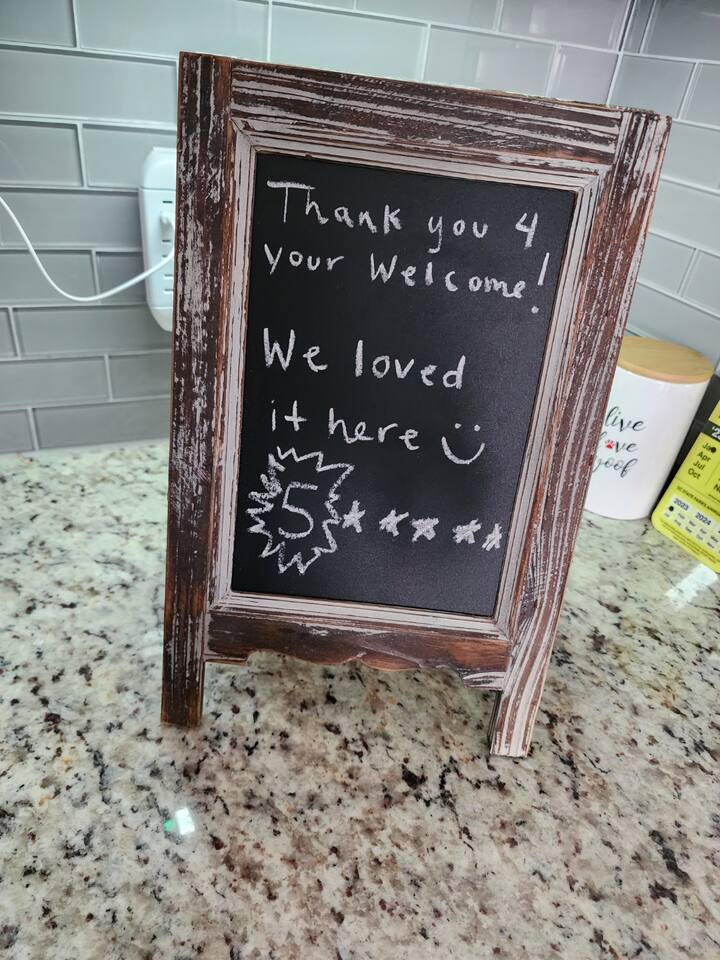 Thank you 4
your Welcome!
We loved
it here
5
live
love
woof
Apr
Jul
Oct
2023 2024